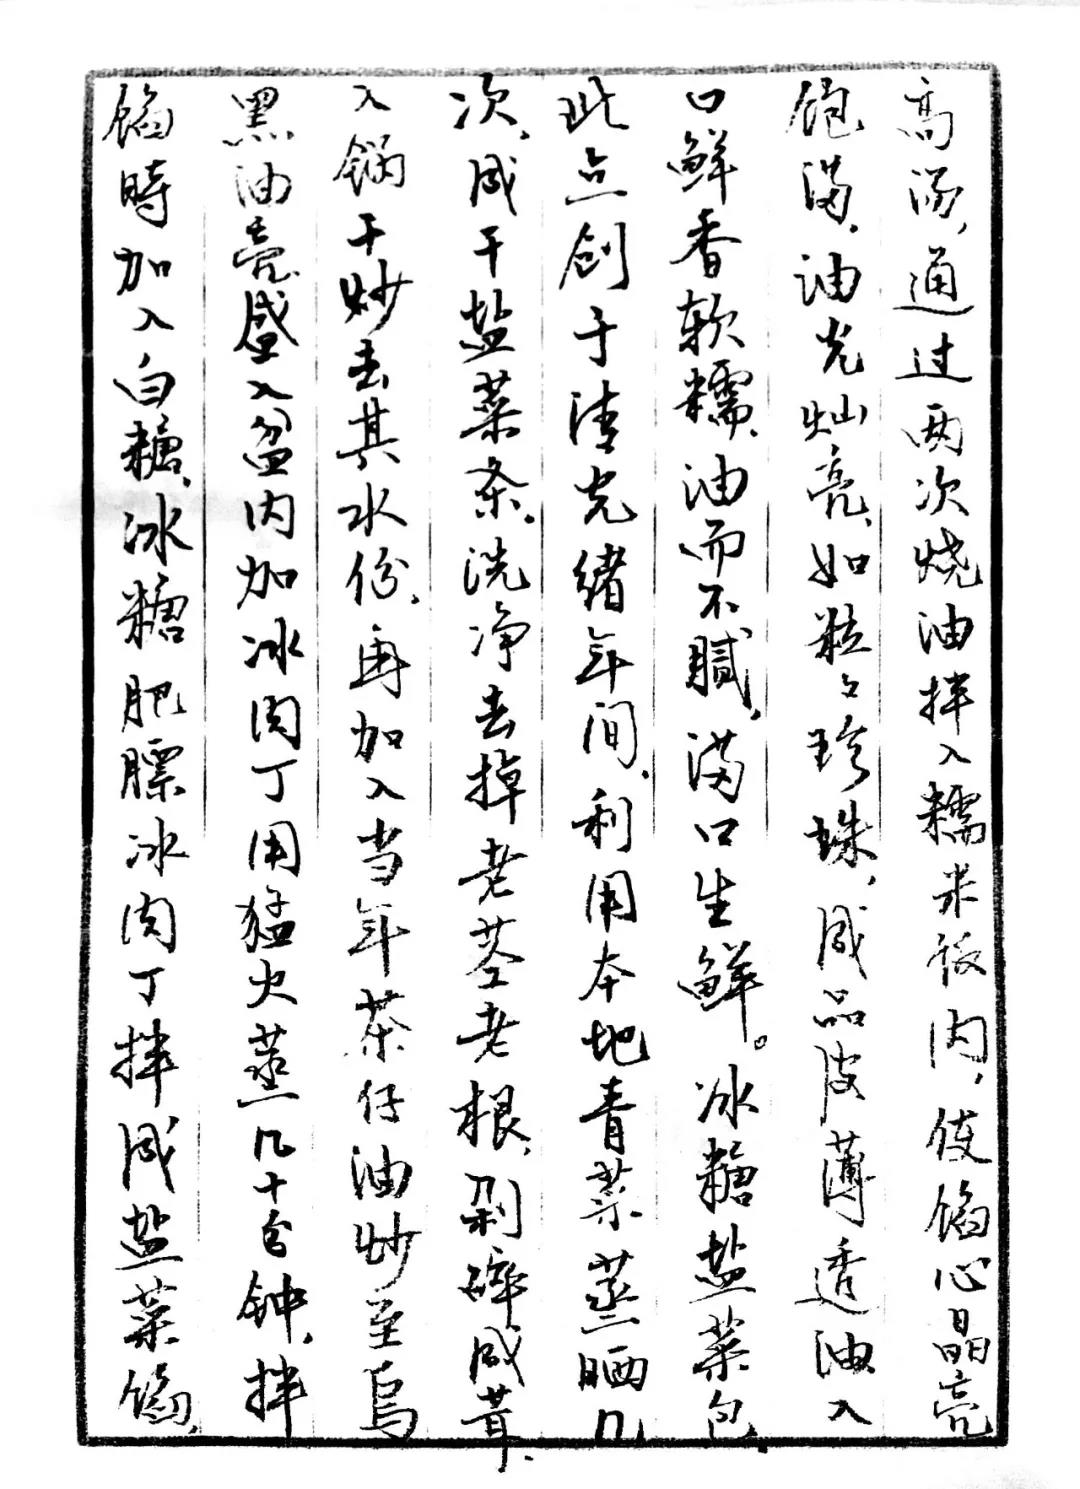 高汤,通过两次烧油拌入糯米饭内,使馅心晶亮
饱满,油光灿亮,如粒々珍珠,成品皮薄透油入
口鲜香软糯,油而不腻,满口生鲜。冰糖盐菜包
此点创于清光绪年间,利用本地青菜蒸晒几
次,成干盐菜条,洗净去掉老茎老根,剁碎成茸,
入锅干炒去其水份,再加入当年茶仔油炒至乌
黑油亮盛入盆内加冰肉丁用猛火蒸几十分钟,拌
馅時加入白糖,冰糖肥膘冰肉丁拌成盐菜馅,